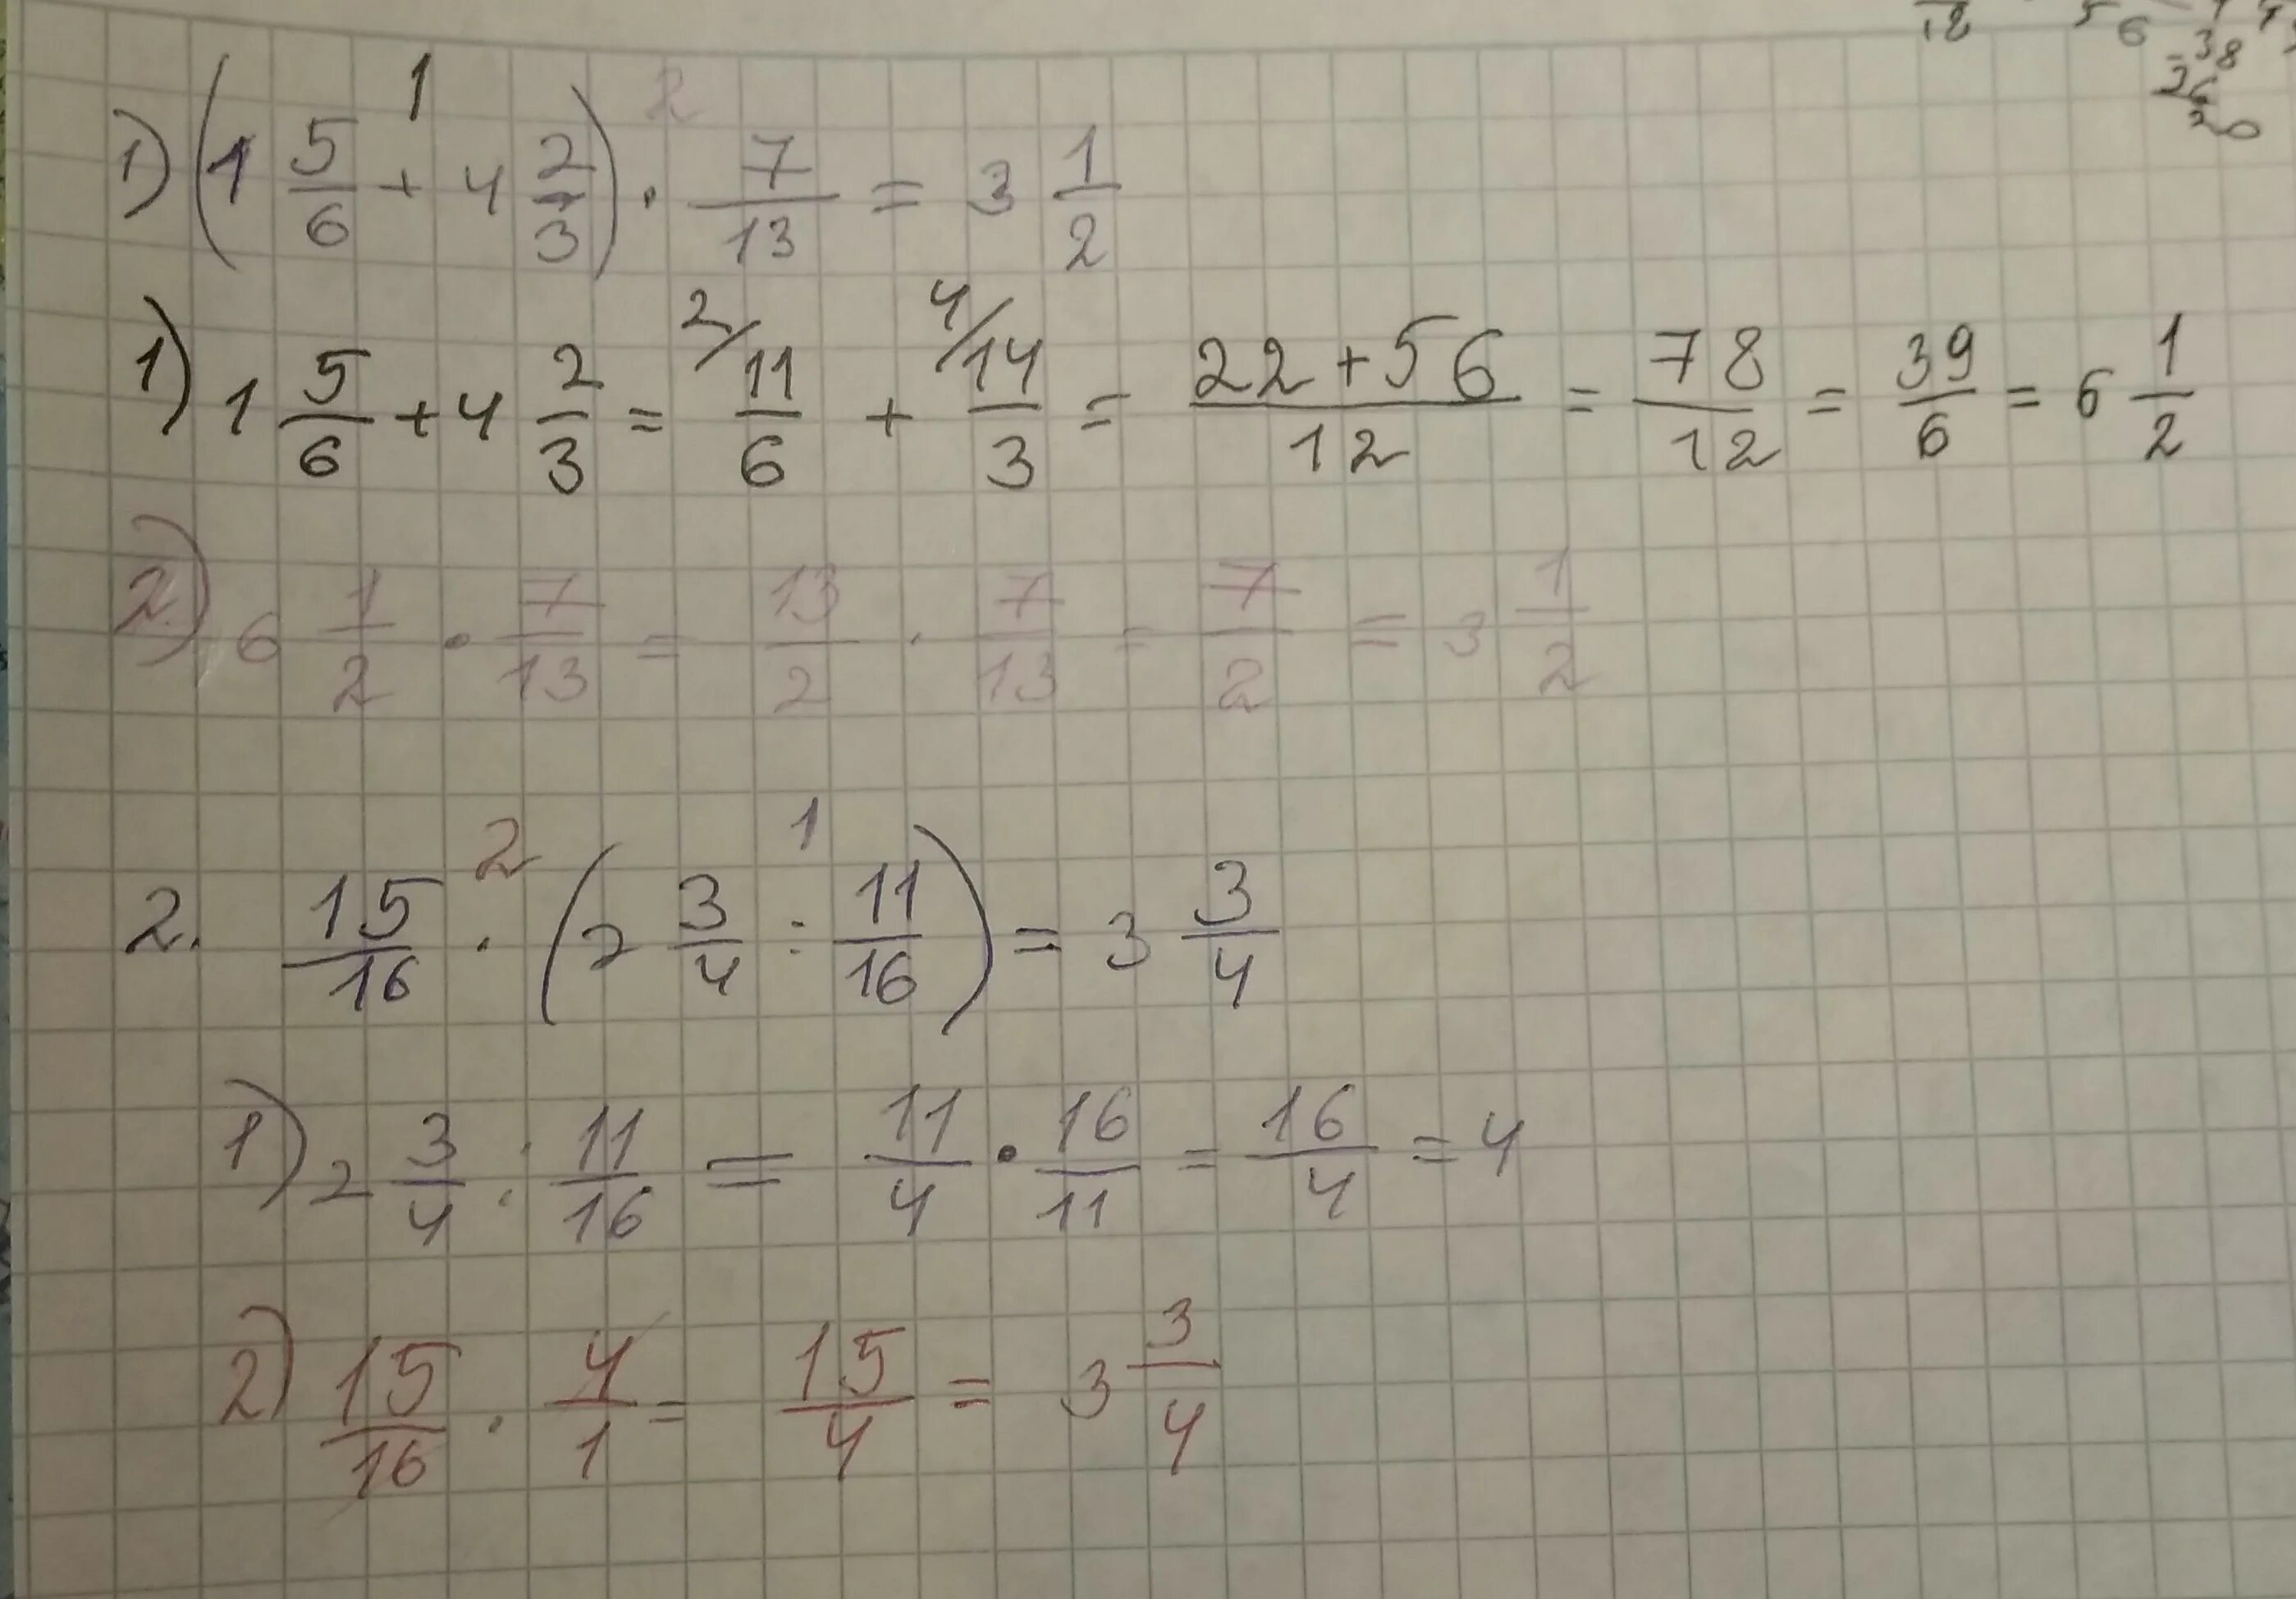 1) (1 5/6 + 4 2/3) · 7/13 = 3 1/2
1 2
1) 1 5/6 + 4 2/3 = 2/ 11/6 + 4/ 14/3 = 22+56/12 = 78/12 = 39/6 = 6 1/2
2) 6 1/2 · 7/13 = 13/2 · 7/13 = 7/2 = 3 1/2
2 1
2. 15/16 · (2 3/4 : 11/16) = 3 3/4
1) 2 3/4 : 11/16 = 11/4 · 16/11 = 16/4 = 4
2) 15/16 · 4/1 = 15/4 = 3 3/4